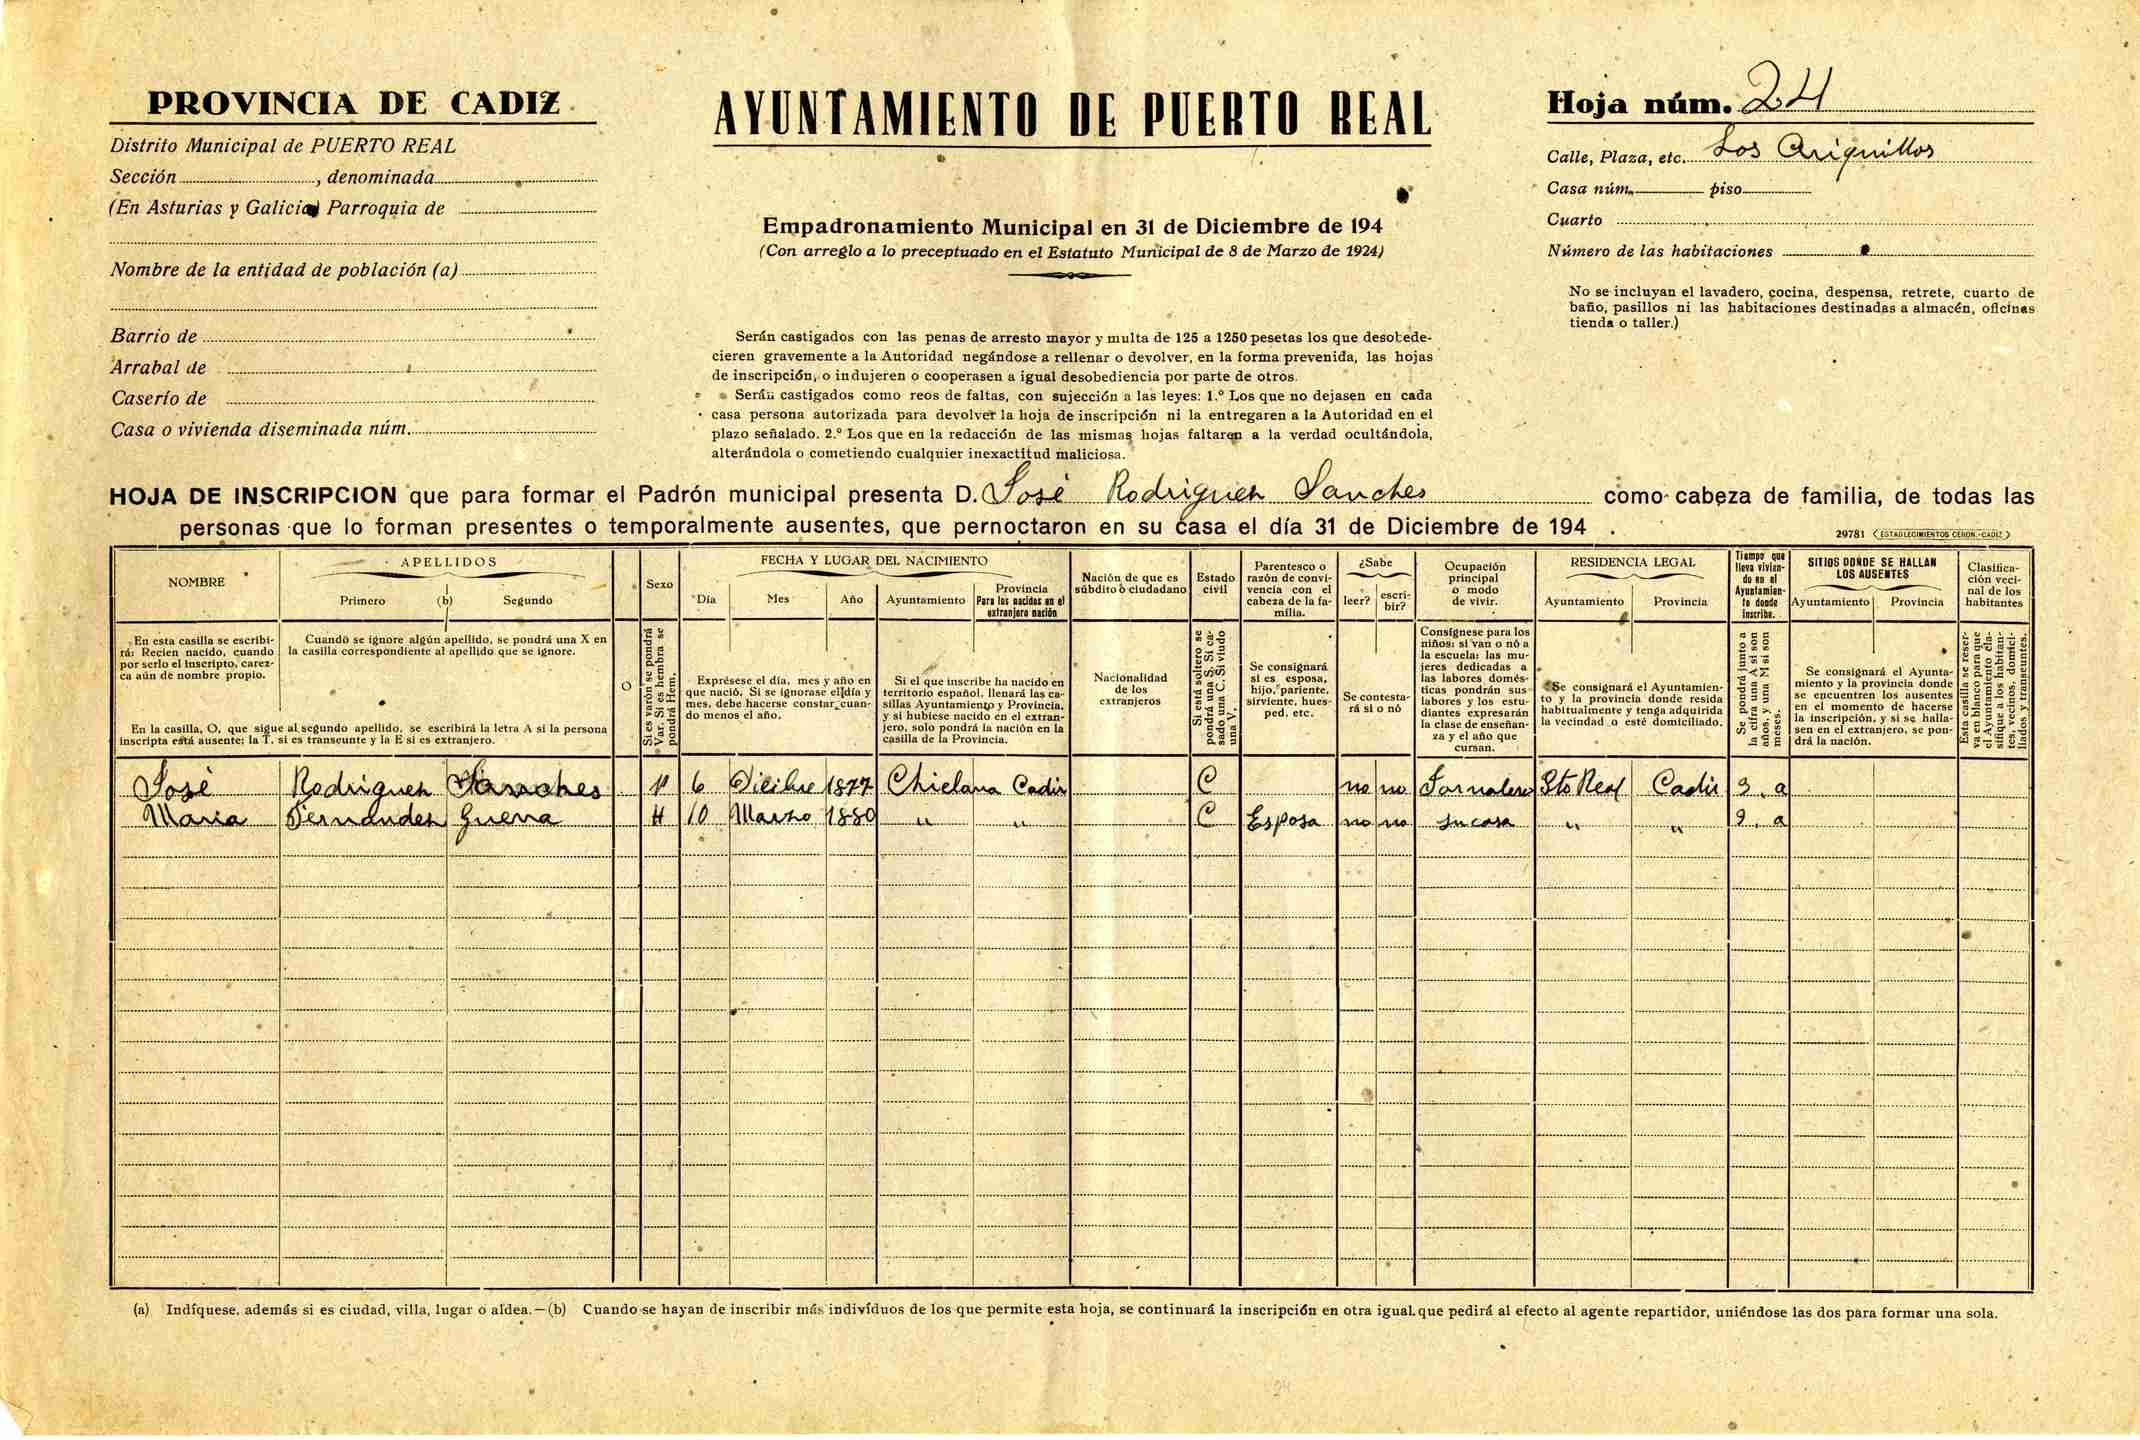 PROVINCIA DE CADIZ
Distrito Municipal de PUERTO REAL
Sección , denominada
(En Asturias y Galicia) Parroquia de
Nombre de la entidad de población (a)
Barrio de
Arrabal de
Caserío de
Casa o vivienda diseminada núm.
AYUNTAMIENTO DE PUERTO REAL
Empadronamiento Municipal en 31 de Diciembre de 194
(Con arreglo a lo preceptuado en el Estatuto Municipal de 8 de Marzo de 1924)
Serán castigados con las penas de arresto mayor y multa de 125 a 1250 pesetas los que desobede-
cieren gravemente a la Autoridad negándose a rellenar o devolver, en la forma prevenida, las hojas
de inscripción, o indujeren o cooperasen a igual desobediencia por parte de otros.
Serán castigados como reos de faltas, con sujección a las leyes: 1.º Los que no dejasen en cada
casa persona autorizada para devolver la hoja de inscripción ni la entregaren a la Autoridad en el
plazo señalado. 2.º Los que en la redacción de las mismas hojas faltaren a la verdad ocultándola,
alterándola o cometiendo cualquier inexactitud maliciosa.
Hoja núm. 24
Calle, Plaza, etc. Los
Casa núm. piso
Cuarto
Número de las habitaciones
No se incluyan el lavadero, cocina, despensa, retrete, cuarto de
baño, pasillos ni las habitaciones destinadas a almacén, oficinas
tienda o taller.)
HOJA DE INSCRIPCION que para formar el Padrón municipal presenta D. José Rodriguez Sanches como cabeza de familia, de todas las
personas que lo forman presentes o temporalmente ausentes, que pernoctaron en su casa el día 31 de Diciembre de 194 .
29781 (ESTABLECIMIENTOS CERON.-CADIZ)
NOMBRE
APELLIDOS
Primero (b) Segundo
O
Sexo
FECHA Y LUGAR DEL NACIMIENTO
Día Mes Año Ayuntamiento
Provincia
Para los nacidos en el
extranjero nación
Nación de que es
súbdito o ciudadano
Estado
civil
Parentesco o
razón de convi-
vencia con el
cabeza de la fa-
milia.
¿Sabe
leer? escri-
bir?
Ocupación
principal
o modo
de vivir.
RESIDENCIA LEGAL
Ayuntamiento Provincia
Tiempo que
lleva vivien-
do en el
Ayuntamien-
to donde
inscribe.
SITIOS DONDE SE HALLAN
LOS AUSENTES
Ayuntamiento Provincia
Clasifica-
ción veci-
nal de los
habitantes
En esta casilla se escribi-
rá: Recien nacido, cuando
por serlo el inscripto, carez-
ca aún de nombre propio.
Cuando se ignore algún apellido, se pondrá una X en
la casilla correspondiente al apellido que se ignore.
En la casilla, O, que sigue al segundo apellido, se escribirá la letra A si la persona
inscripta está ausente; la T. si es transeunte y la E si es extranjero.
Si es varón se pondrá
Var. Si es hembra se
pondrá Hem.
Exprésese el día, mes y año en
que nació. Si se ignorase el día y
mes, debe hacerse constar cuan-
do menos el año.
Si el que inscribe ha nacido en
territorio español, llenará las ca-
sillas Ayuntamiento y Provincia,
y si hubiese nacido en el extran-
jero, solo pondrá la nación en la
casilla de la Provincia.
Nacionalidad
de los
extranjeros
Si está soltero se
pondrá una S. Si ca-
sado una C. Si viudo
una V.
Se consignará
si es esposa,
hijo, pariente,
sirviente, hues-
ped, etc.
Se contesta-
rá si o nó
Consígnese para los
niños: si van o nó a
la escuela: las mu-
jeres dedicadas a
las labores domés-
ticas pondrán sus
labores y los estu-
diantes expresarán
la clase de enseñan-
za y el año que
cursan.
Se consignará el Ayuntamien-
to y la provincia donde resida
habitualmente y tenga adquirida
la vecindad o esté domiciliado.
Se pondrá junto a
la cifra una A si son
años, y una M si son
meses.
Se consignará el Ayunta-
miento y la provincia donde
se encuentren los ausentes
en el momento de hacerse
la inscripción, y si se halla-
sen en el extranjero, se pon-
drá la nación.
Esta casilla se reser-
va en blanco para que
el Ayuntamiento cla-
sifique a los habitan-
tes, vecinos, domici-
liados y transeuntes.
José Rodriguez Sanches 6 1877 Chiclana Cadiz C no no Jornalero Pto Real Cadiz 3. a
Maria Fernandez Guerra H 10 Marzo 1880 " " C Esposa no no su casa " " 9. a
(a) Indíquese, además si es ciudad, villa, lugar o aldea.—(b) Cuando se hayan de inscribir más indivíduos de los que permite esta hoja, se continuará la inscripción en otra igual que pedirá al efecto al agente repartidor, uniéndose las dos para formar una sola.
24